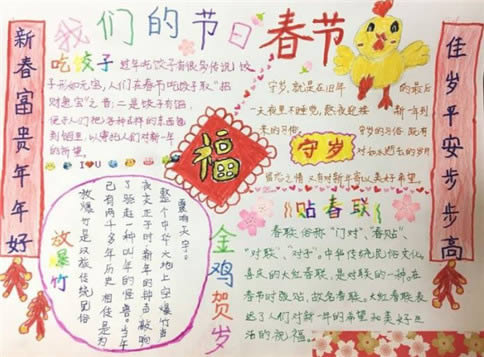 我们的节日 春节
新春富贵年年好
佳岁平安步步高
吃饺子
过年吃饺子有很多传说,饺
子形如元宝,人们在春节吃饺子取"招
财进宝"之音,二是饺子有馅,
便于人们把各种吉祥的东西包
到馅里,以寄托人们对新一年
的祈望。
I❤U
守岁,就是在旧年的最后
一天夜里不睡觉,熬夜迎接新一年到
来的习俗
守岁的习俗,既有
守岁
对如水逝去的岁月
留恋之情,又有对新年寄以美好希望。
福
放爆竹
夜天正子时,新年的钟声敲响
整个中华大地上空,爆竹声
震响天宇。
了驱赶一种叫年的怪兽。
已有两千多年历史,相传是为
放爆竹是汉族传统习俗
金鸡贺岁
贴春联
春联俗称"门对"、"春贴"
"对联"、"对子"。中华传统民俗文化
喜庆的大红春联,是对联的一种,在
春节时张贴,故名春联。大红春联表
达了人们对新一年的希望和美好生
活的祝福。